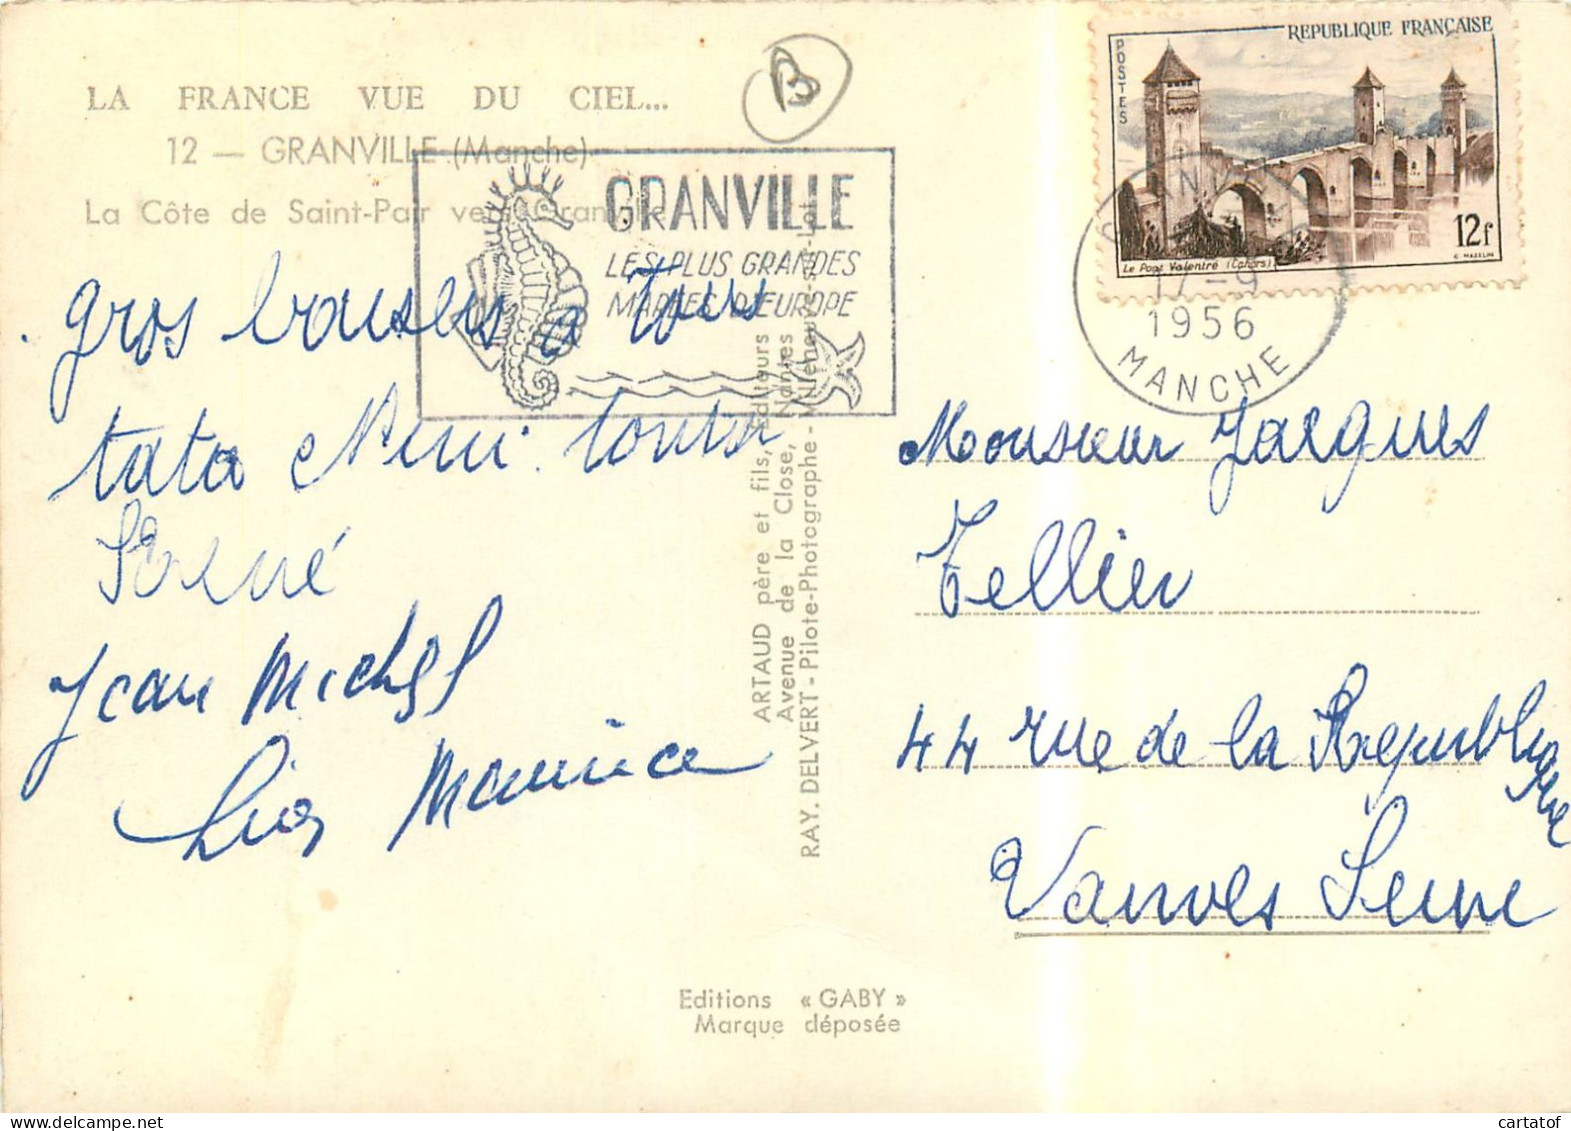 LA FRANCE VUE DU CIEL...
12 — GRANVILLE (Manche)
La Côte de Saint-Pair vers Granville
B
GRANVILLE
LES PLUS GRANDES
MAREES D'EUROPE
REPUBLIQUE FRANÇAISE
POSTES
12f
Le Pont Valentré (Cahors)
C. MAZELIN
GRANVILLE
17-9
1956
MANCHE
gros a Tous
tata Nini
Jean Michel
Maurice
ARTAUD père et fils, Editeurs
Avenue de la Close, Nantes
RAY. DELVERT - Pilote-Photographe - Villeneuve-sur-Lot
Monsieur Jacques
Tellier
44 rue de la République
Vanves Seine
Editions « GABY »
Marque déposée
cartatof